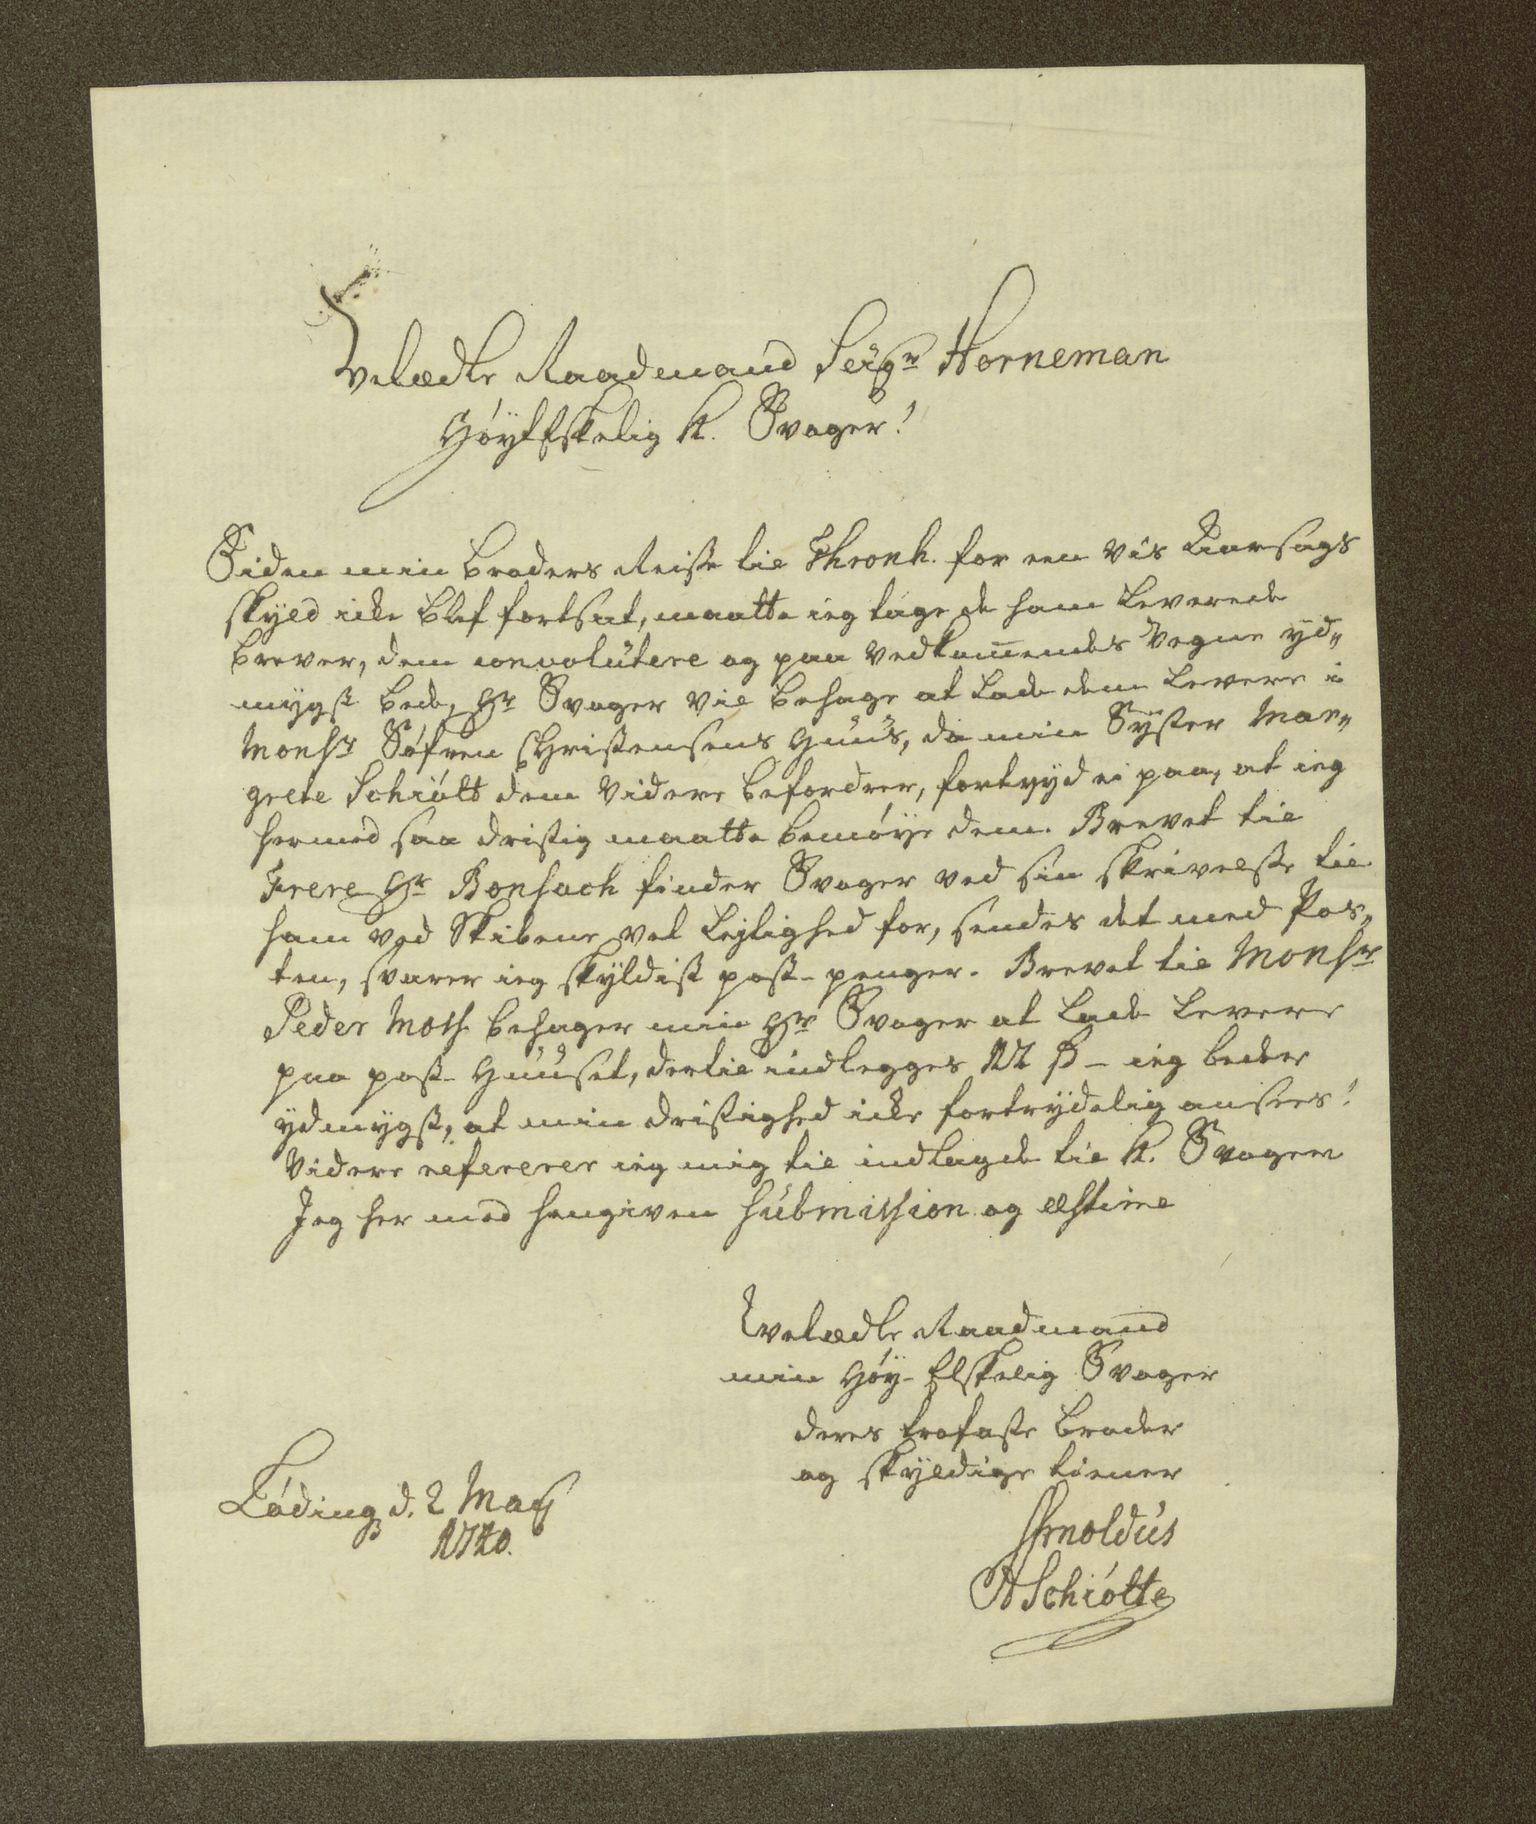 Velædle Raadmand Seigr Horneman
Høyl Elskelig K. Svoger!
Siden min broders Reise til Thronh. for een vis Aarsags
skyld icke blef fortsat, maatte ieg tage de ham leverede
brever, dem convolutere og paa vedkom̄endes vegne yd„
mygst bede, Hr Svoger vil behage at lade dem levere i
Monsr Søfren Christensens Huus, da min Syster Mar„
grete Schiøtt dem videre befordrer, fortryd ei paa, at ieg
hermed saa dristig maatte bemøye dem. Brevet til
Frere Hr Bonsach finder Svoger ved sin skrivelse til
ham ved Skibene vel lejlighed for, sendes det med Pos„
ten, svarer ieg skyldist post-penger. Brevet til Monsr
Peder Moss behager min Hr Svoger at lade levere
paa post-Huuset, dertil indlegges 12 ß - ieg beder
ydmygst, at min dristighed icke fortrydelig ansees!
Videre refererer ieg mig til indlagde til K. Svogern
Jeg her med hengiven submission og æstime
Velædle Raadmand
min Høy-Elskelig Svoger
deres trofaste broder
og skyldige tiener
Løding d. 2 Maj
1740.
Arnoldus
ASchiøtte